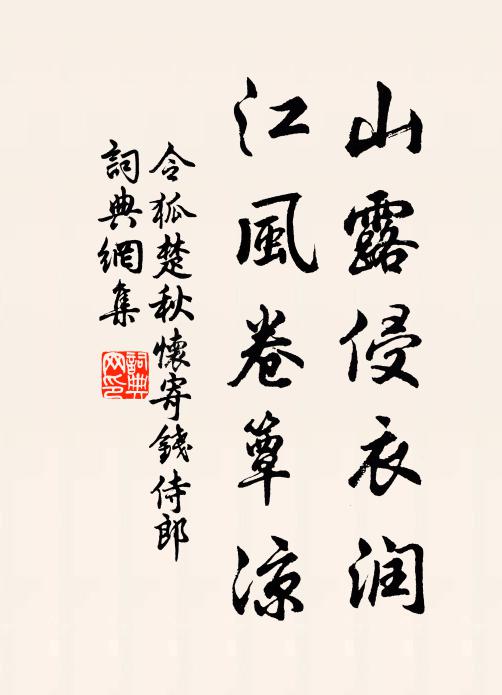 山露侵衣润
江風卷簟凉
令狐楚秋懷寄錢侍郎
詞典網集
詞典网印